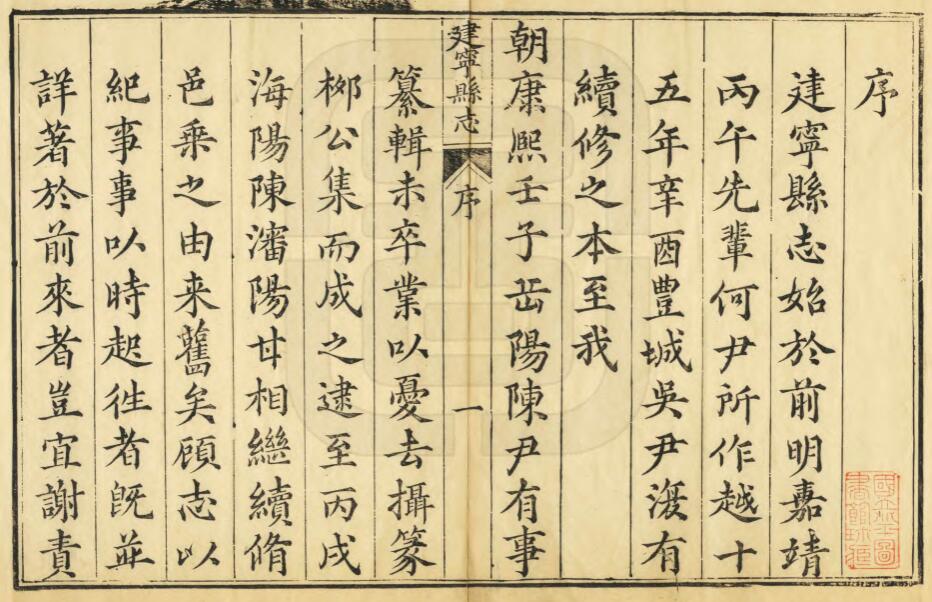 序
建寧縣志始於前明嘉靖
丙午先輩何尹所作越十
五年辛酉豊城吳尹復有
續修之本至我
朝康熈壬子岳陽陳尹有事
建寧縣志
序
一
纂輯未卒業以憂去攝篆
栁公集而成之逮至丙戌
海陽陳瀋陽甘相繼續脩
邑乗之由来舊矣顧志以
紀事事以時起徃者既並
詳著於前來者豈宜謝責